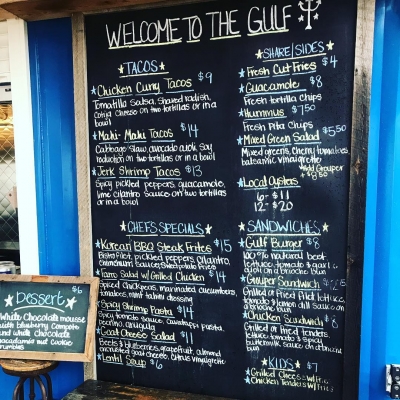 WELCOME TO THE GULF
TACOS
Chicken Curry Tacos $9
Tomatillo Salsa, Shaved radish,
Cotija Cheese on two tortillas or in a
bowl
Mahi-Mahi Tacos $14
Cabbage slaw, avocado aioli, soy
reduction on two tortillas or in a bowl
Jerk Shrimp Tacos $13
Spicy pickled peppers, guacamole,
lime cilantro sauce on two tortillas
or in a bowl
CHEF'S SPECIALS
Korean BBQ Steak Frites $15
pickled peppers, cilantro,
Sauce, Sweet potato Frites
Salad w/ Grilled Chicken $14
Spiced Chickpeas, marinated cucumbers,
tomatoes, mint tahini dressing
Spicy Shrimp Pasta $14
Spicy tomato sauce, pasta,
pecorino, arugula
Goat Cheese Salad $11
Beets & blueberries, grapefruit, almond
encrusted goat cheese, citrus vinaigrette
Lentil Soup $6
SHARE/SIDES
Fresh Cut Fries $4
Guacamole $8
Fresh tortilla Chips
Hummus $750
Fresh Pita Chips
Mixed Green Salad $550
Mixed greens, Cherry tomatoes
balsamic vinaigrette
Add Grouper
Local Oysters
6- $11
12- $20
SANDWICHES
Gulf Burger $8
100% natural beef
lettuce, tomato & garlic
aioli on a brioche bun
Grouper Sandwich
Grilled or fried filet, lettuce
tomato & lemon dill sauce on
a brioche bun
Chicken Sandwich $8
Grilled or fried tenders,
lettuce, tomato & spicy
buttermilk sauce on a brioche
bun
KIDS $7
Grilled Cheese w/
Chicken Tenders w/
Dessert $6
White Chocolate mousse
with blueberry compote
and white Chocolate
macadamia nut Cookie
crumbles